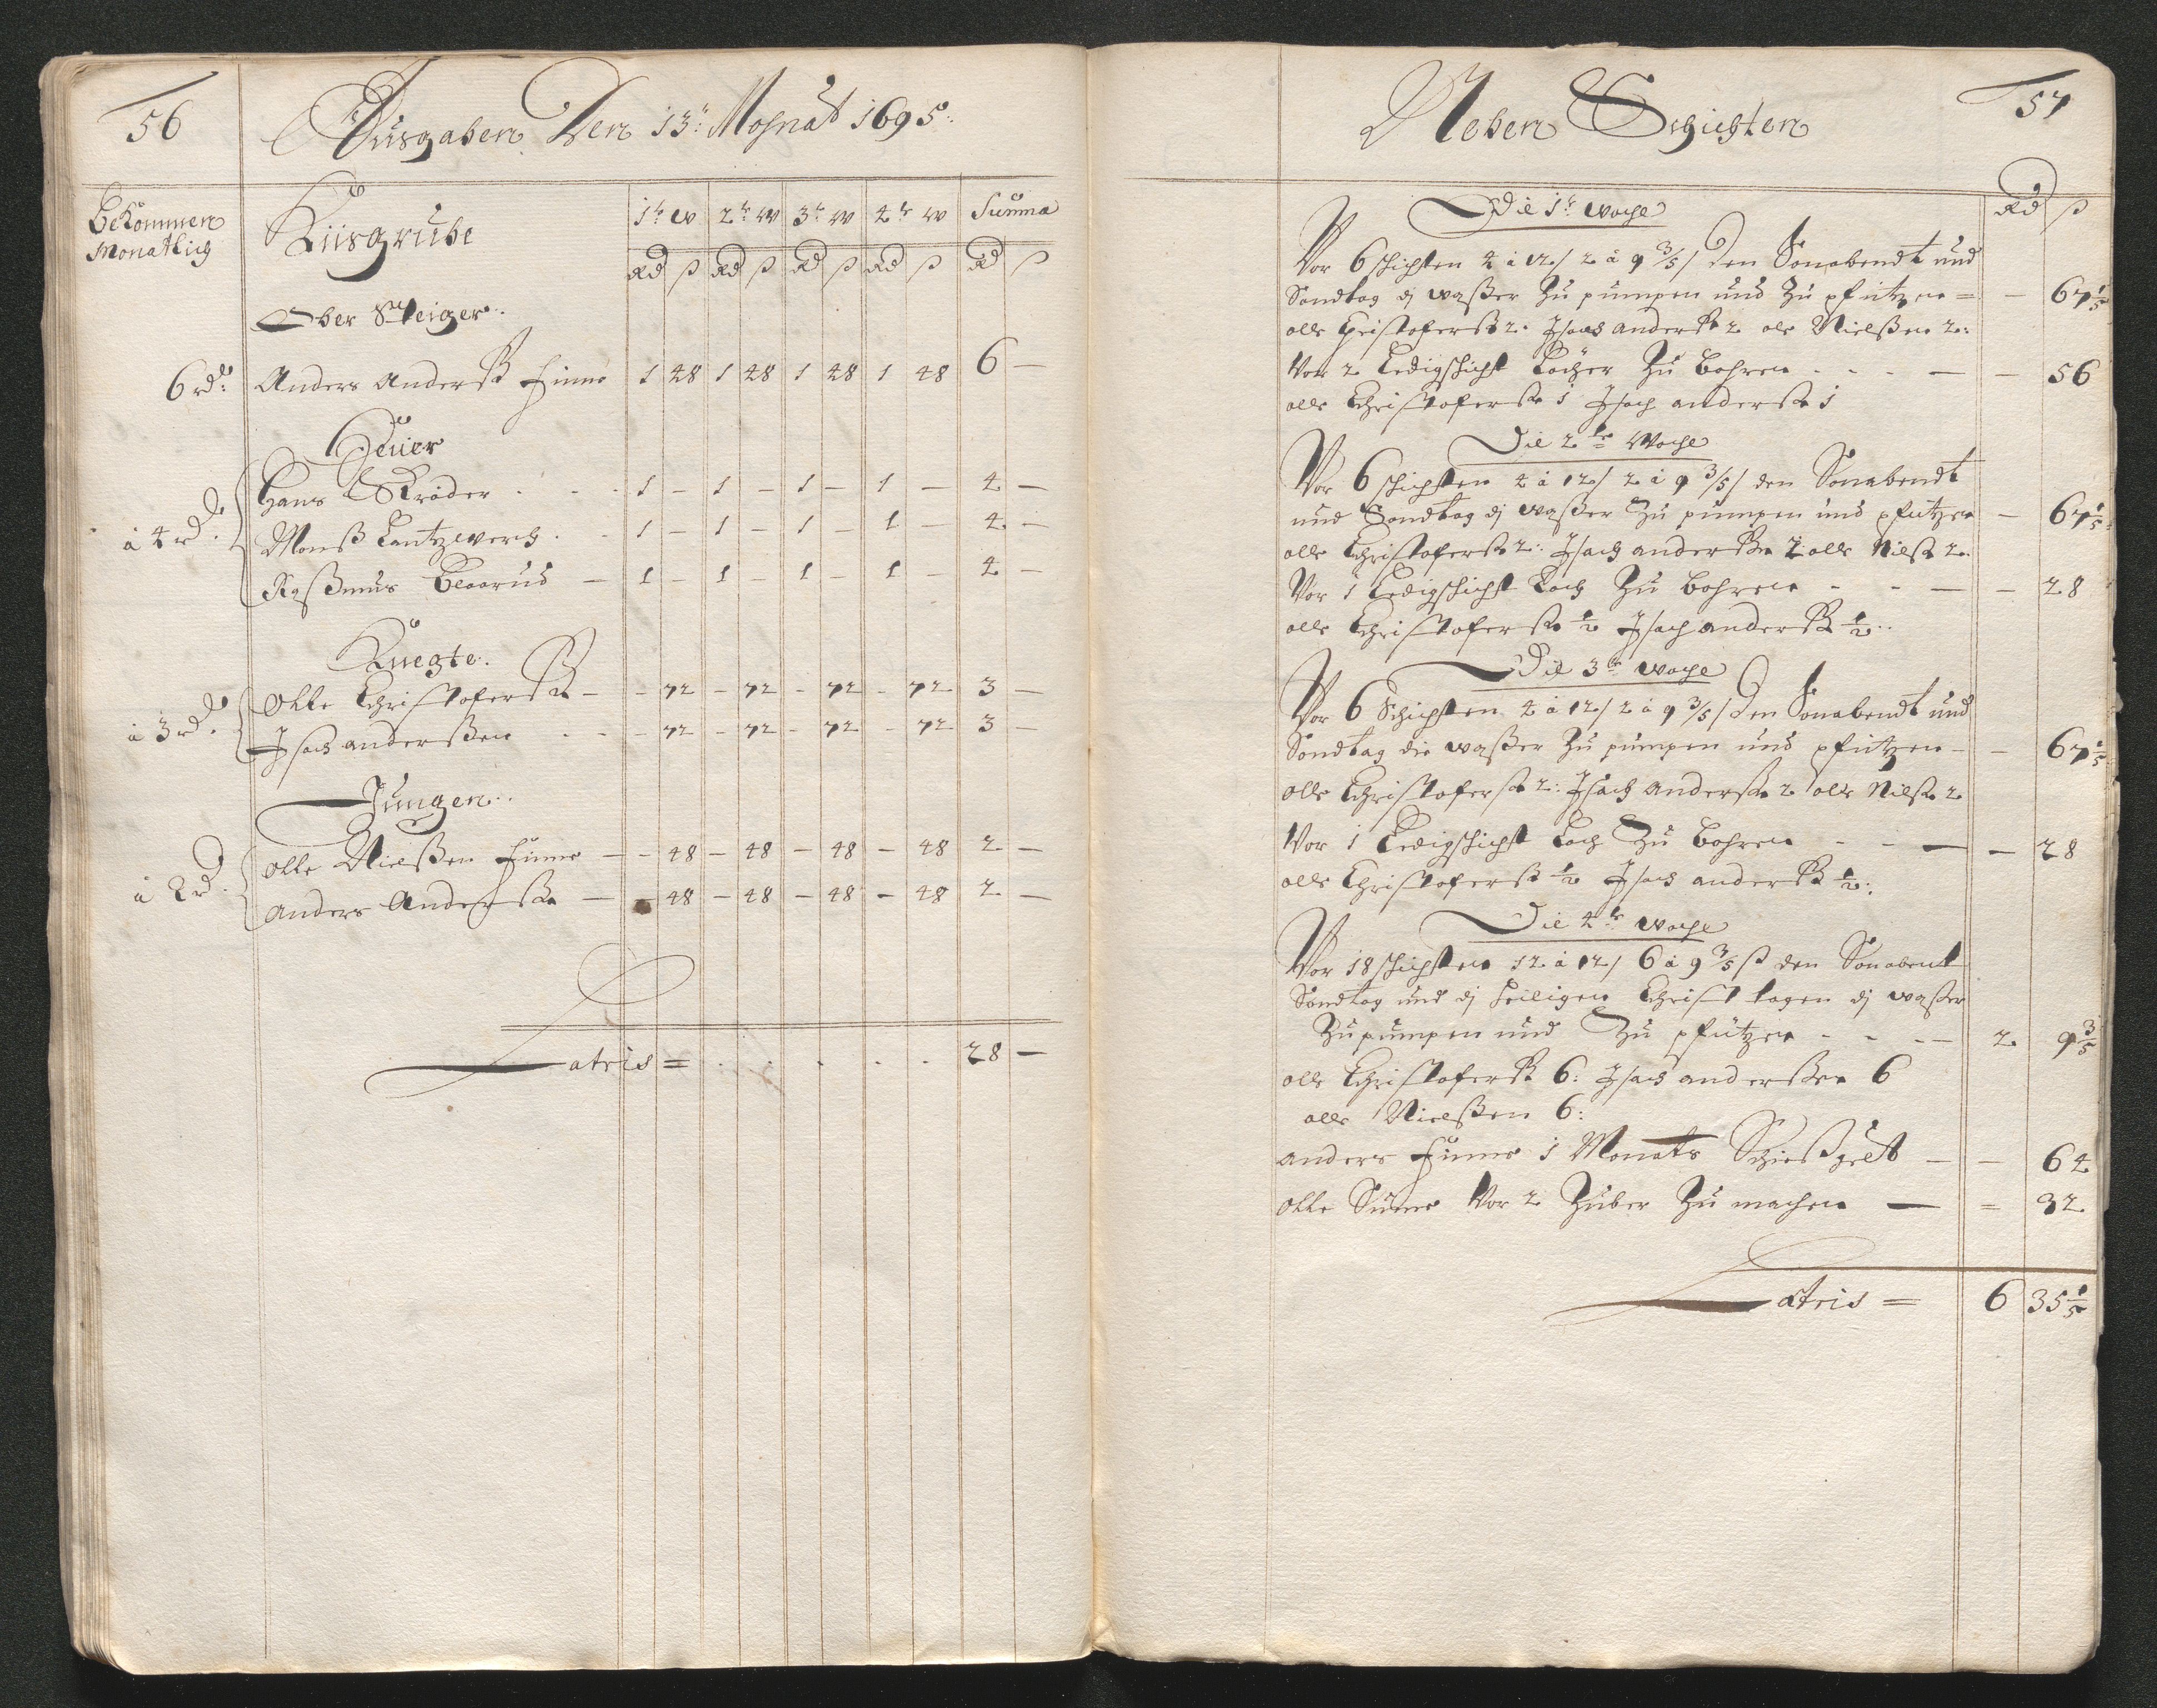 56
Ausgaben Den 13ᵗ: Mohnat 1695:
bekommen
Monatlich
Kiisgrube
1ᵗ w 2ᵗ w 3ᵗ w 4ᵗ w Summa
Rd ß Rd ß Rd ß Rd ß Rd ß
Ober Steiger.
6 rd: Anders Anderß Finne 1 48 1 48 1 48 1 48 6 —
Heuer
à 4 rd.
Hans Ströder . . . 1 — 1 — 1 — 1 — 4 —
Monß Lantzwerch . . 1 — 1 — 1 — 1 — 4 —
Raßmus Blaarud — 1 — 1 — 1 — 1 — 4 —
Knegte.
à 3 rd.
Olle Christoferß — — 72 — 72 — 72 — 72 3 —
Isach anderßen . . — 72 — 72 — 72 — 72 3 —
Jungen.
à 2 rd.
Olle Nielßen Finne — — 48 — 48 — 48 — 48 2 —
Anders Anderße — — 48 — 48 — 48 — 48 2 —
Latris = . . . . . 28 —
57
Neben Schichten
Rd ß
Die 1ᵗ woche
Vor 6 schichten 4 à 12/ 2 à 9 3/5/ den Sonabendt und
Sondtag dj waßer Zu pumpen und Zu pfützen = — 67 1/5
olle Christoferß 2. Isach anderß 2 ole Nielßen 2:
Vor 2 Ledigschicht Löcher Zu bohren - - - — — 56
olle Christoferße 1 Isach anderße 1
Die 2ᵗᵉ Woche
Vor 6 schichten 4 à 12/ 2 à 9 3/5/ den Sonabendt
und Sondtag dj waßer Zu pumpen und pfützen — 67 1/5
olle Christoferße 2: Isach anderßen 2 olle Nielß 2.
Vor 1 Ledigschicht Loch Zu bohren - - — — 28
olle Christoferße 1/2 Isach anderß 1/2.
Die 3ᵗᵉ woche
Vor 6 Schichten 4 à 12/ 2 à 9 3/5/ den Sonabendt und
Sondtag die waßer Zu pumpen und pfützen — — 67 1/5
olle Christoferße 2: Isach Anderßen 2 olle Nielß 2
Vor 1 Ledigschicht Loch Zu bohren - - — — 28
olle Christoferß 1/2 Isach anderß 1/2:
Die 4ᵗᵉ woche
Vor 18 schichten 12 à 12/ 6 à 9 3/5 ß den Sonabent
Sondtag und dj heiligen Christ tagen dj waßer
Zu pumpen und Zu pfützen - - — 2 9 3/5
olle Christoferß 6: Isach anderßen 6
olle Nielßen 6:
Anders Finne 1 Monats Schießgelt — — 64
Olle Finne Vor 2 Zuber Zu machen — = 32
Latris = 6 35 1/5